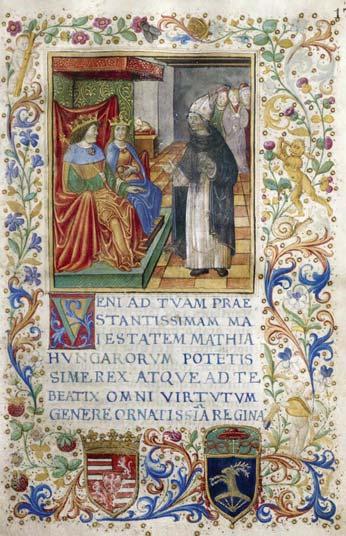 VENI AD TVAM PRAE
STANTISSIMAM MA
IESTATEM MATHIA
HVNGARORVM POTETIS
SIME REX ATQVE AD TE
BEATIX OMNI VIRTVTVM
GENERE ORNATISSIA REGINA